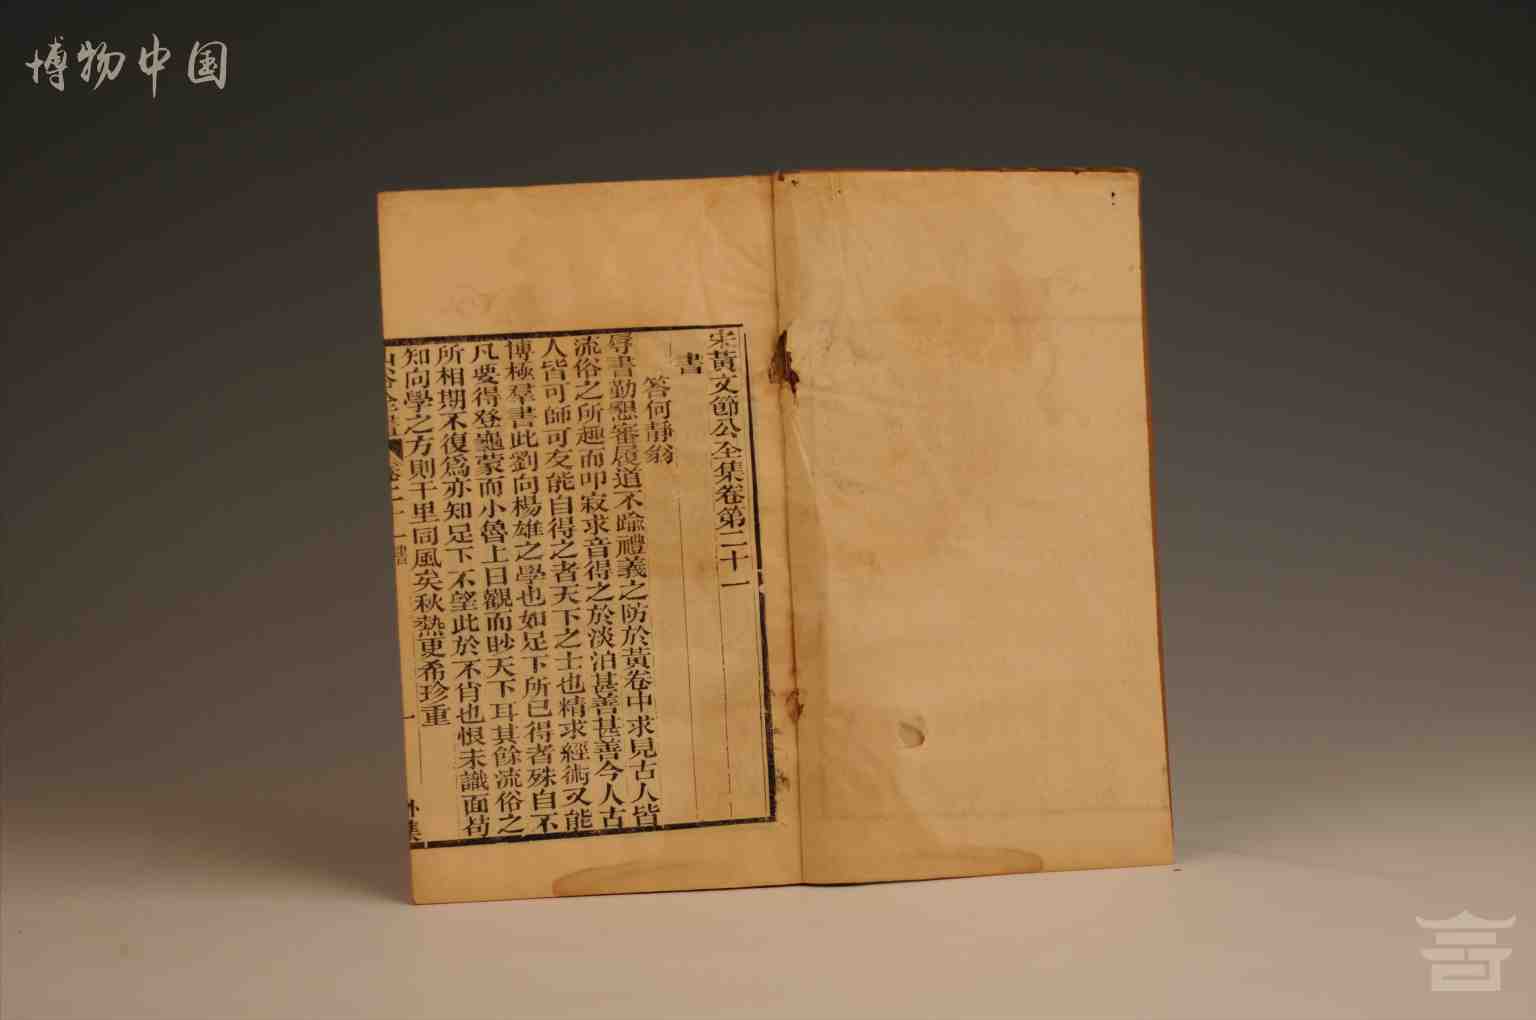 博物中国
宋黃文節公全集卷第二十一
書
答何靜翁
辱書勤懇審履道不踰禮義之防於黃卷中求見古人皆
流俗之所趣而叩寂求音得之於淡泊甚善甚善今人古
人皆可師可友能自得之者天下之士也精求經術又能
博極羣書此劉向楊雄之學也如足下所已得者殊自不
凡要得登龜蒙而小魯上日觀而眇天下耳其餘流俗之
所相期不復爲亦知足下不望此於不肖也恨未識面苟
知向學之方則千里同風矣秋熱更希珍重
山谷全書
卷二十一
書
一
外集